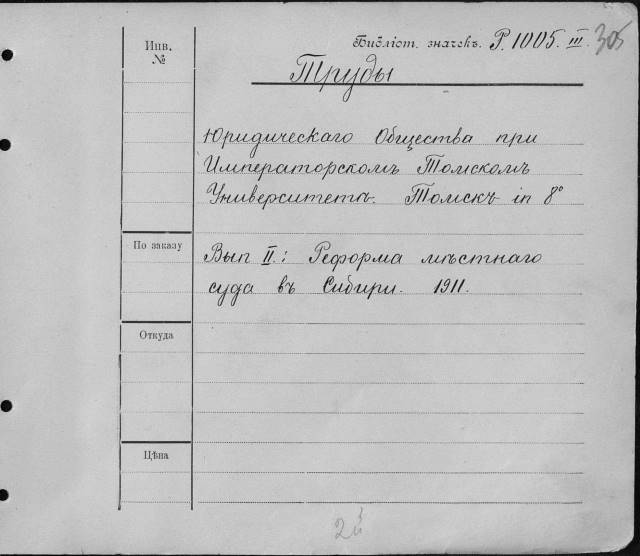 Инв.
№
Библіот. значекъ. Р. 1005. III. 305
Труды
Юридическаго Общества при
Императорскомъ Томскомъ
Университетѣ. Томскъ in 8°
По заказу
Вып II.: Реформа мѣстнаго
суда въ Сибири. 1911.
Откуда
Цѣна